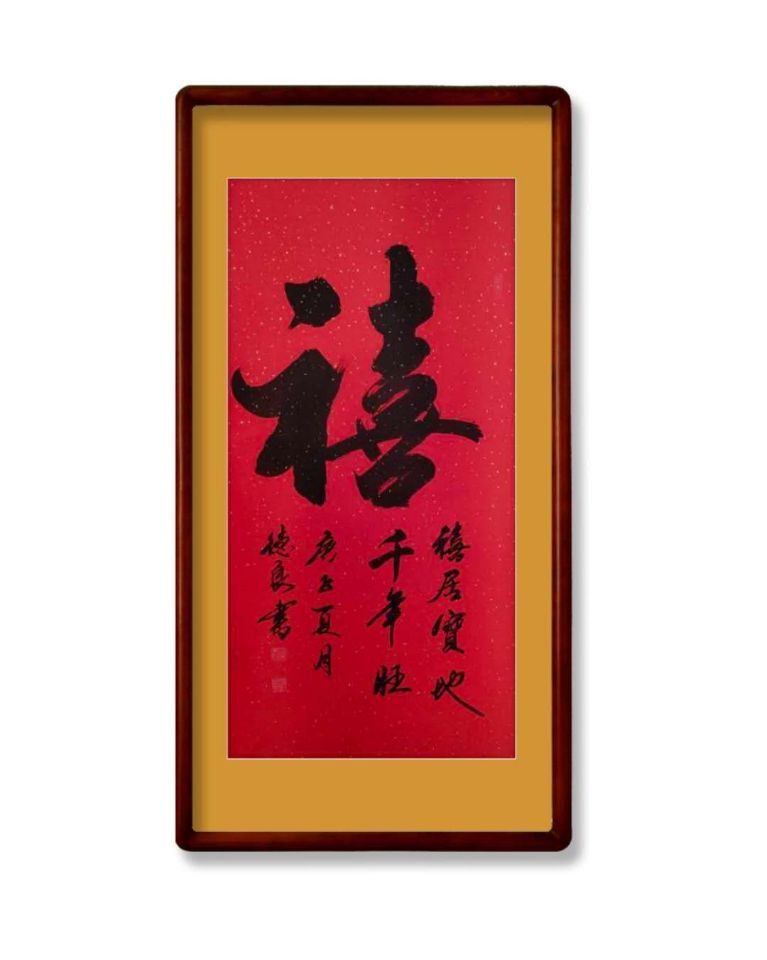 禧
禧居寶地
千年旺
庚子夏月
德良書